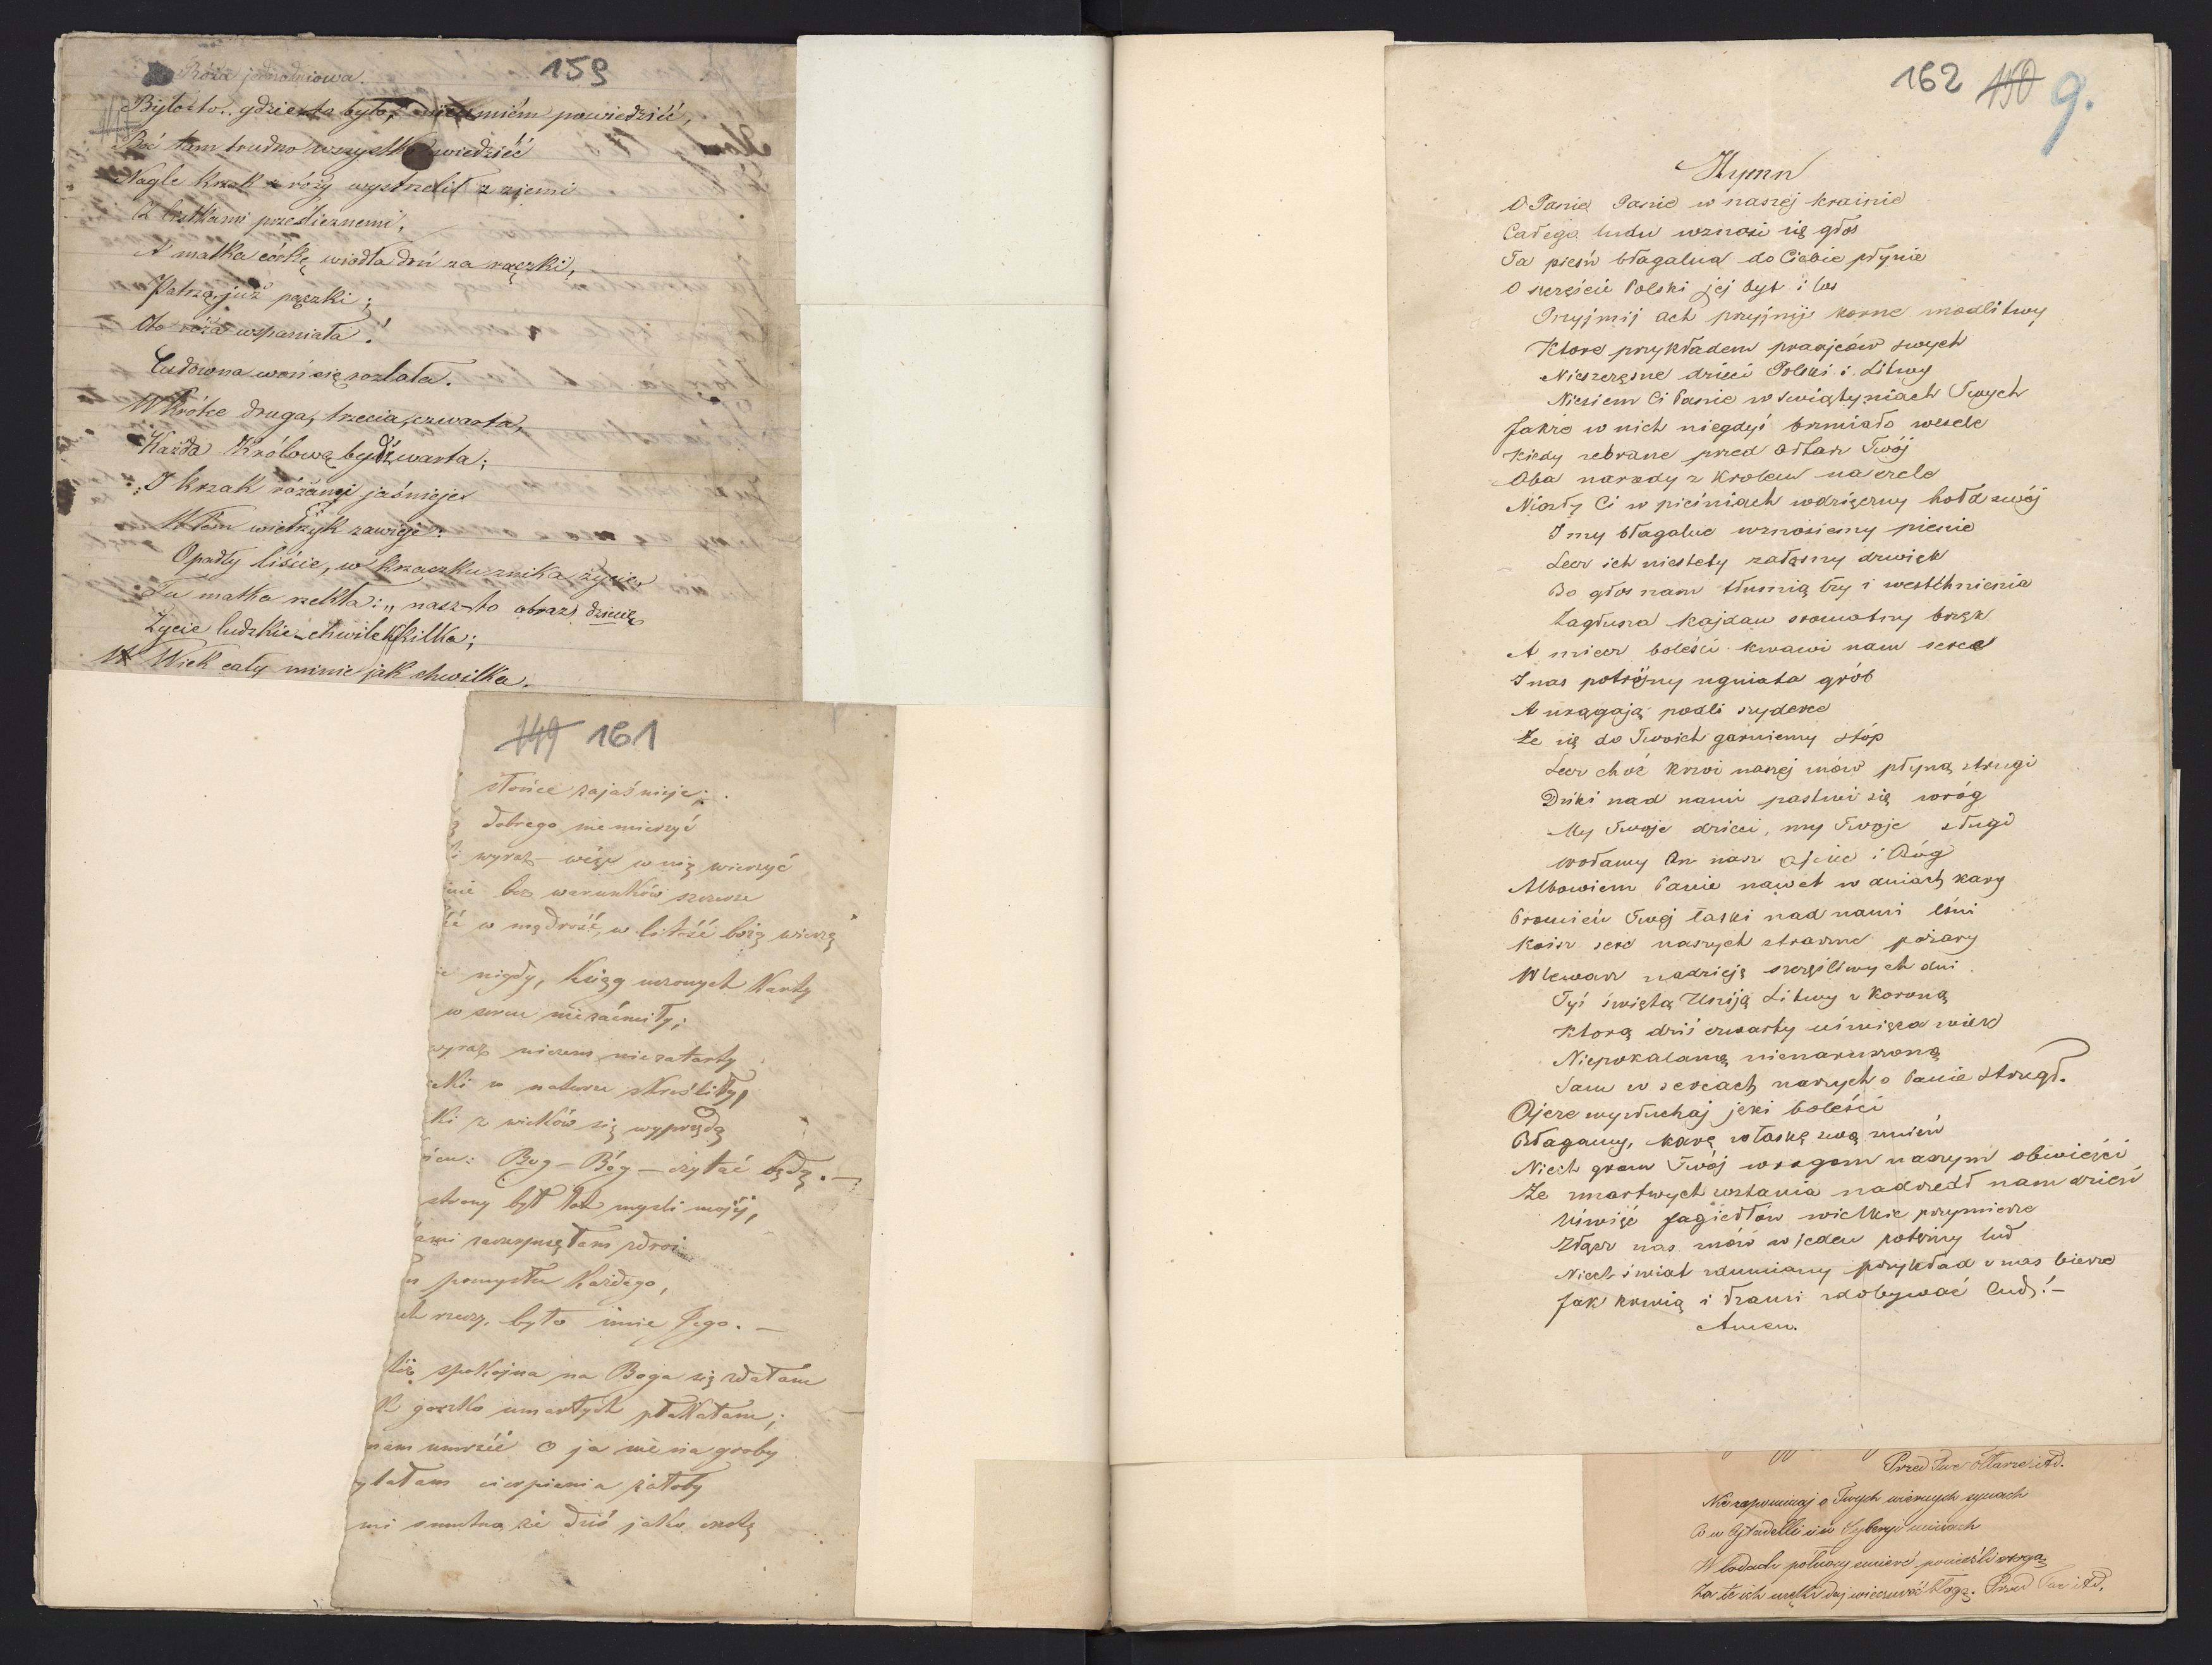 159
Róża jednodniowa.
Byłoto.. gdzie to było, nieumiém powiedziéć,
Boć tam trudno wszystko wiedziéć
Nagle krzak róży wystrzelił z ziemi
Z listkami prześlicznemi,
A matka córkę wiodła doń za rączki,
Patrzą, już pączki;
Oto róża wspaniała!
Cudowna woń się rozlała.
Wkrótce druga, trzecia, czwarta,
Każda Królową być warta;
I krzak różami jaśnieje
Wtém wietrzyk zawieje:
Opadły liście, w krzaczku znika życie,
Tu matka rzekła: „nasz-to obraz dziecię
Życie ludzkie-chwilek kilka;
Wiek cały minie jak chwilka.
149 161
słońce zajaśnieje;
dobrego nie mierzyć
wyraz więc w nią wierzyć
bez warunków szczerze
w mądrość, w litość bożą wierzę
nigdy, Ksiąg uczonych Karty
w sercu nie zaćmiły;
wyraz niczem niezatarty
w naturze skreśliły,
ki z wieków się wyprzędą
Bog - Bóg - czytać będę. -
strony był lot myśli mojéj,
zaczerpnęłam zdroi
pomysłu Każdego,
rzeczy, było imie Jego. -
spokojna na Boga się zdałam
gorzko umarłych płakałam;
umrzéć O ja nie na groby
cierpienia żałoby
smutno, że dziś jako
162 150 9.
Hymn
O Panie Panie w naszej krainie
Całego ludu wznosi się głos
Ta pieśń błagalna do Ciebie płynie
O szczęście Polski jej byt i los
Przyjmij ach przyjmij korne modlitwy
Ktore przykładem praojców swych
Nieszczęsne dzieci Polski i Litwy
Niesiem Ci Panie w świątyniach Twych
Jakże w nich niegdyś brzmiało wesele
Kiedy zebrane przed Ołtarz Twój
Oba narody z Krolem na czele
Niosły Ci w pieśniach wdzięczny hołd swój
I my błagalne wznosiemy pienie
Lecz ich niestety żałosny dzwięk
Bo głos nam tłumią łzy i westchnienia
Zagłusza kajdan sromotny brzęk
A miecz boleści krwawi nam serce
I nas potrójny ugniata grób
A urągają podli szyderce
Że się do Twoich garniemy stóp
Lecz choć krwi naszej znów płyną strugi
Dziki nad nami pastwi się wróg
My Twoje dzieci, my Twoje sługi
wołamy On nasz Ojciec i Bóg
Albowiem Panie nawet w dniach kary
Promień Twej łaski nad nami lśni
Koisz serc naszych straszne pożary
Wlewasz nadzieję szczęśliwych dni
Tyś świętą Uniją Litwy z Koroną
Ktorą dziś czwarty uświęca wiek
Niepokalaną nienaruszoną
Sam w sercach naszych o Panie strzegł.
Ojcze wysłuchaj jęki boleści
Błagamy, karę w łaskę swą zmień
Niech grom Twój wrogom naszym obwieści
Że zmartwychwstania nadszedł nam dzień
Uświęć Jagiełłów wielkie przymierze
Złącz nas znów w jeden potężny lud
Niech świat zdumiony przykład z nas bierze
Jak krwią i łzami zdobywać Cud! -
Amen.
Przed Twe Ołtarze itd.
Nie zapominaj o Twych wiernych synach
Co w Cytadelli i w Syberyi minach
W lodach północy śmierć ponieśli srogą
Za te ich męki daj wieczność błogą. Przed Twe itd.